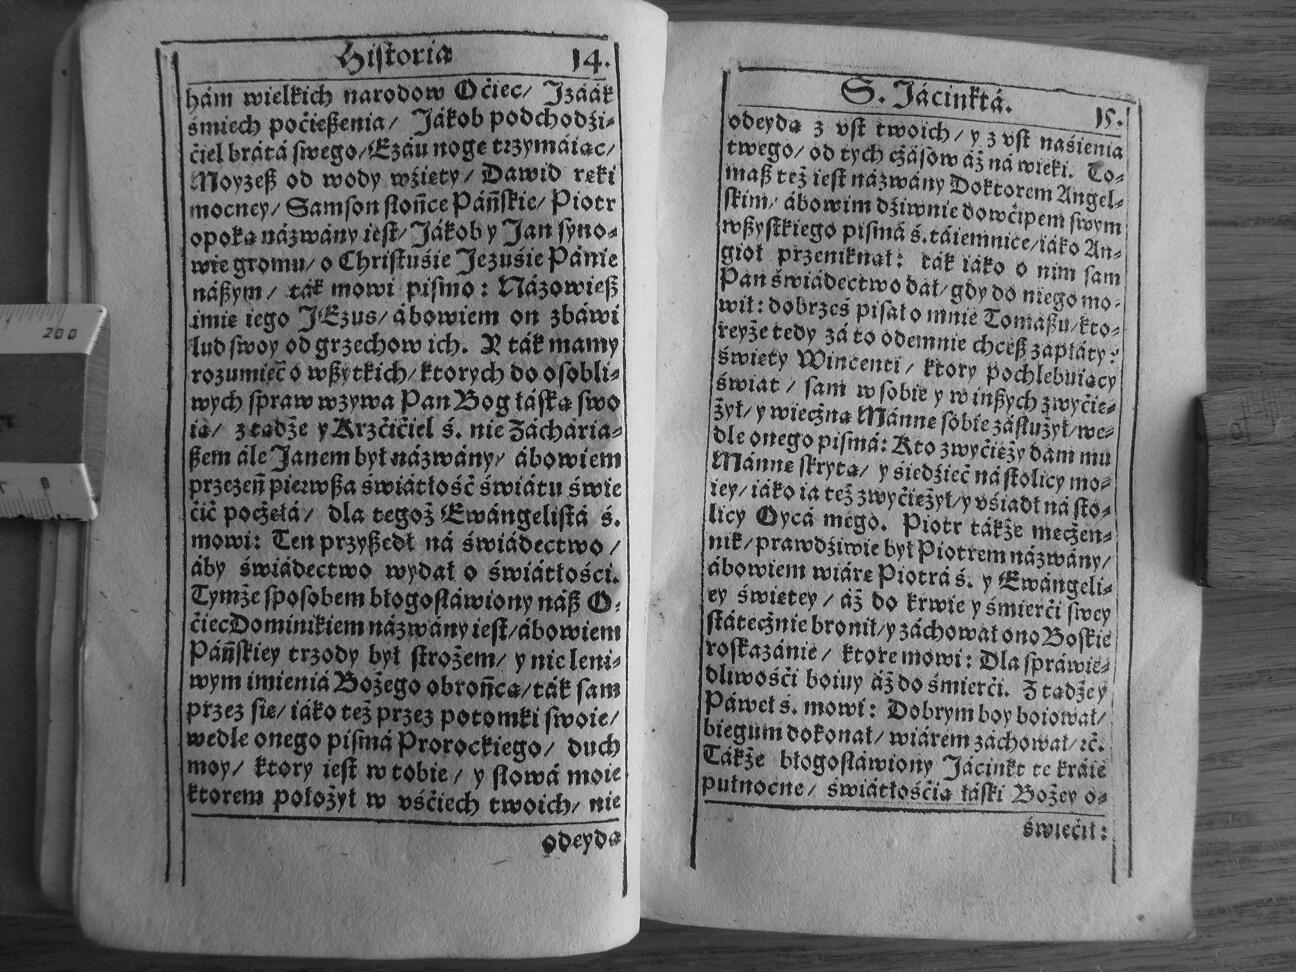 Historia 14.
hám wielkich narodow Oćiec/ Jzáák
śmiech poćießenia/ Jákob podchodźi⸗
ćiel brátá ſwego/ Ezáu nogę trzymáiąc/
Moyzeß od wody wźięty/ Dawid ręki
mocney/ Samſon ſłońce Páńſkie/ Piotr
opoką názwány ieſt/ Jákob y Jan ſyno⸗
wie gromu/ o Chriſtuśie Jezuśie Pánie
náßym/ ták mowi piſmo: Názowieß
imię iego JEzus/ ábowiem on zbáwi
lud ſwoy od grzechow ich. Y ták mamy
rozumieć o wßytkich/ ktorych do oſobli⸗
wych ſpraw wzywa Pan Bog łáſką ſwo
ią/ z tądże y Krzćićiel ś. nie Záchária⸗
ßem ále Janem był názwány/ ábowiem
przezeń pierwßa świátłość świátu świe
ćić poczęłá/ dla tegoż Ewángeliſtá ś.
mowi: Ten przyßedł ná świádectwo/
áby świádectwo wydał o świátłośći.
Tymże ſpoſobem błogoſłáwiony náß O⸗
ćiec Dominikiem názwány ieſt/ ábowiem
Páńſkiey trzody był ſtrożem/ y nie leni⸗
wym imieniá Bożego obrońcą/ ták ſam
przez ſię/ iáko też przez potomki ſwoie/
wedle onego piſmá Prorockiego/ duch
moy/ ktory ieſt w tobie/ y ſłowá moie
ktorem położył w vśćiech twoich/ nie
odeydą
S. Jácinktá. 15.
odeydą z vſt twoich/ y z vſt naśienia
twego/ od tych czáſow áż ná wieki. To⸗
maß też ieſt názwány Doktorem Angel⸗
ſkim/ ábowim dźiwnie dowćipem ſwym
wßyſtkiego piſmá ś. táiemnice/ iáko An⸗
gioł przeniknął: ták iáko o nim ſam
Pan świádectwo dał/ gdy do niego mo⸗
wił: dobrześ piſał o mnie Tomaßu/ kto⸗
reyże tedy zá to odemnie chceß zapłáty?
święty Wincenti/ ktory pochlebuiący
świát/ ſam w ſobie y w inßych zwyćię⸗
żył/ y wieczną Mánnę ſobie záſłużył/ we⸗
dle onego piſmá: Kto zwyćięży dam mu
Mánnę ſkrytą/ y śiedźieć ná ſtolicy mo⸗
iey/ iáko ia też zwyćiężył/ y vśiadł ná ſto⸗
licy Oycá mego. Piotr tákże męczen⸗
nik/ prawdźiwie był Piotrem názwány/
ábowiem wiárę Piotrá ś. y Ewángeli⸗
ey świętey/ áż do krwie y śmierći ſwey
ſtátecznie bronił/ y záchował ono Boſkie
roſkazánie/ ktore mowi: Dla ſpráwie⸗
dliwośći boiuy áż do śmierći. Z tądże y
Páweł ś. mowi: Dobrym boy boiował/
biegum dokonał/ wiárem záchował/ ꝛć.
Tákże błogoſłáwiony Jácinkt te kráie
pułnocne/ świátłośćią łáſki Bożey o⸗
świećił: